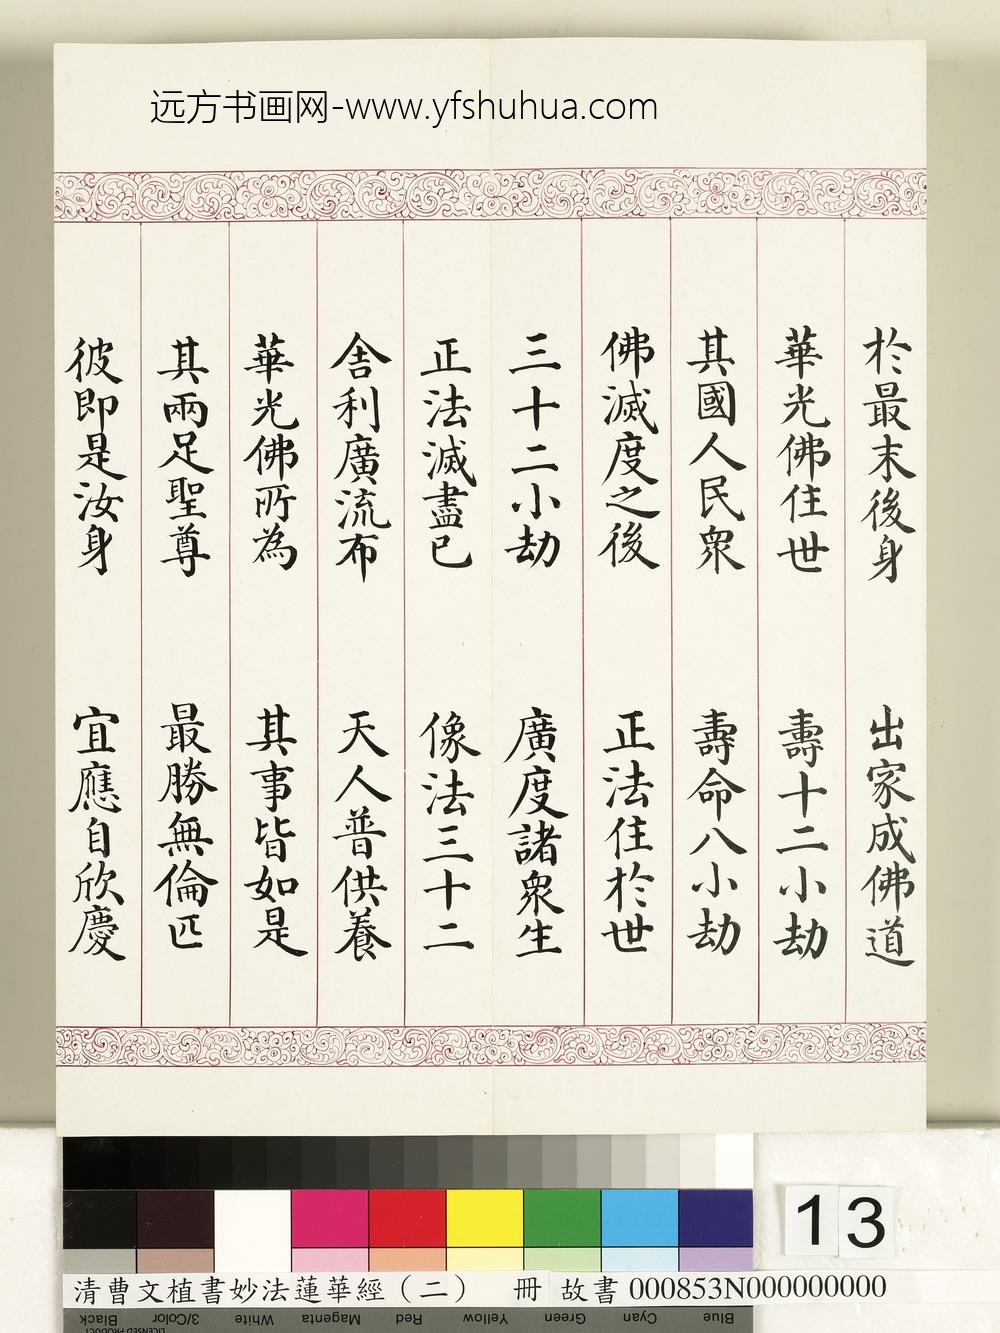 远方书画网-www.yfshuhua.com
於最末後身 出家成佛道
華光佛住世 壽十二小劫
其國人民衆 壽命八小劫
佛滅度之後 正法住於世
三十二小劫 廣度諸衆生
正法滅盡已 像法三十二
舍利廣流布 天人普供養
華光佛所為 其事皆如是
其兩足聖尊 最勝無倫匹
彼即是汝身 宜應自欣慶
13
清曹文植書妙法蓮華經（二） 冊 故書 000853N000000000
Black 3/Color White Magenta Red Yellow Green Cyan Blue